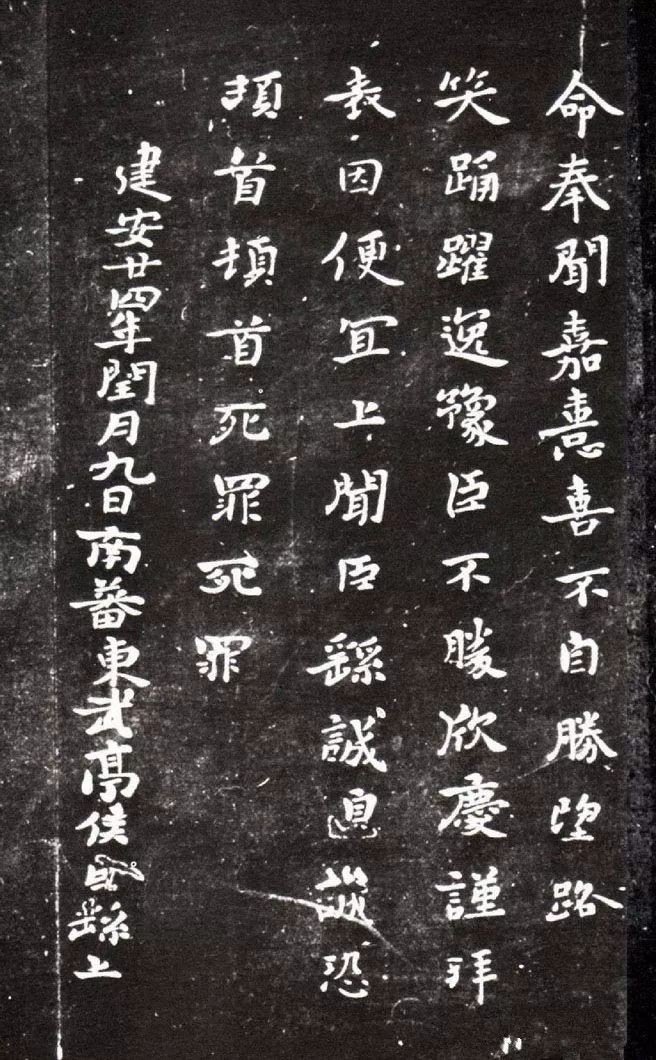 命奉聞嘉憙喜不自勝望路
笑踊躍逸豫臣不勝欣慶謹拜
表因便宜上聞臣繇誠惶誠恐
頓首頓首死罪死罪
建安廿四年閏月九日南蕃東武亭侯臣繇上